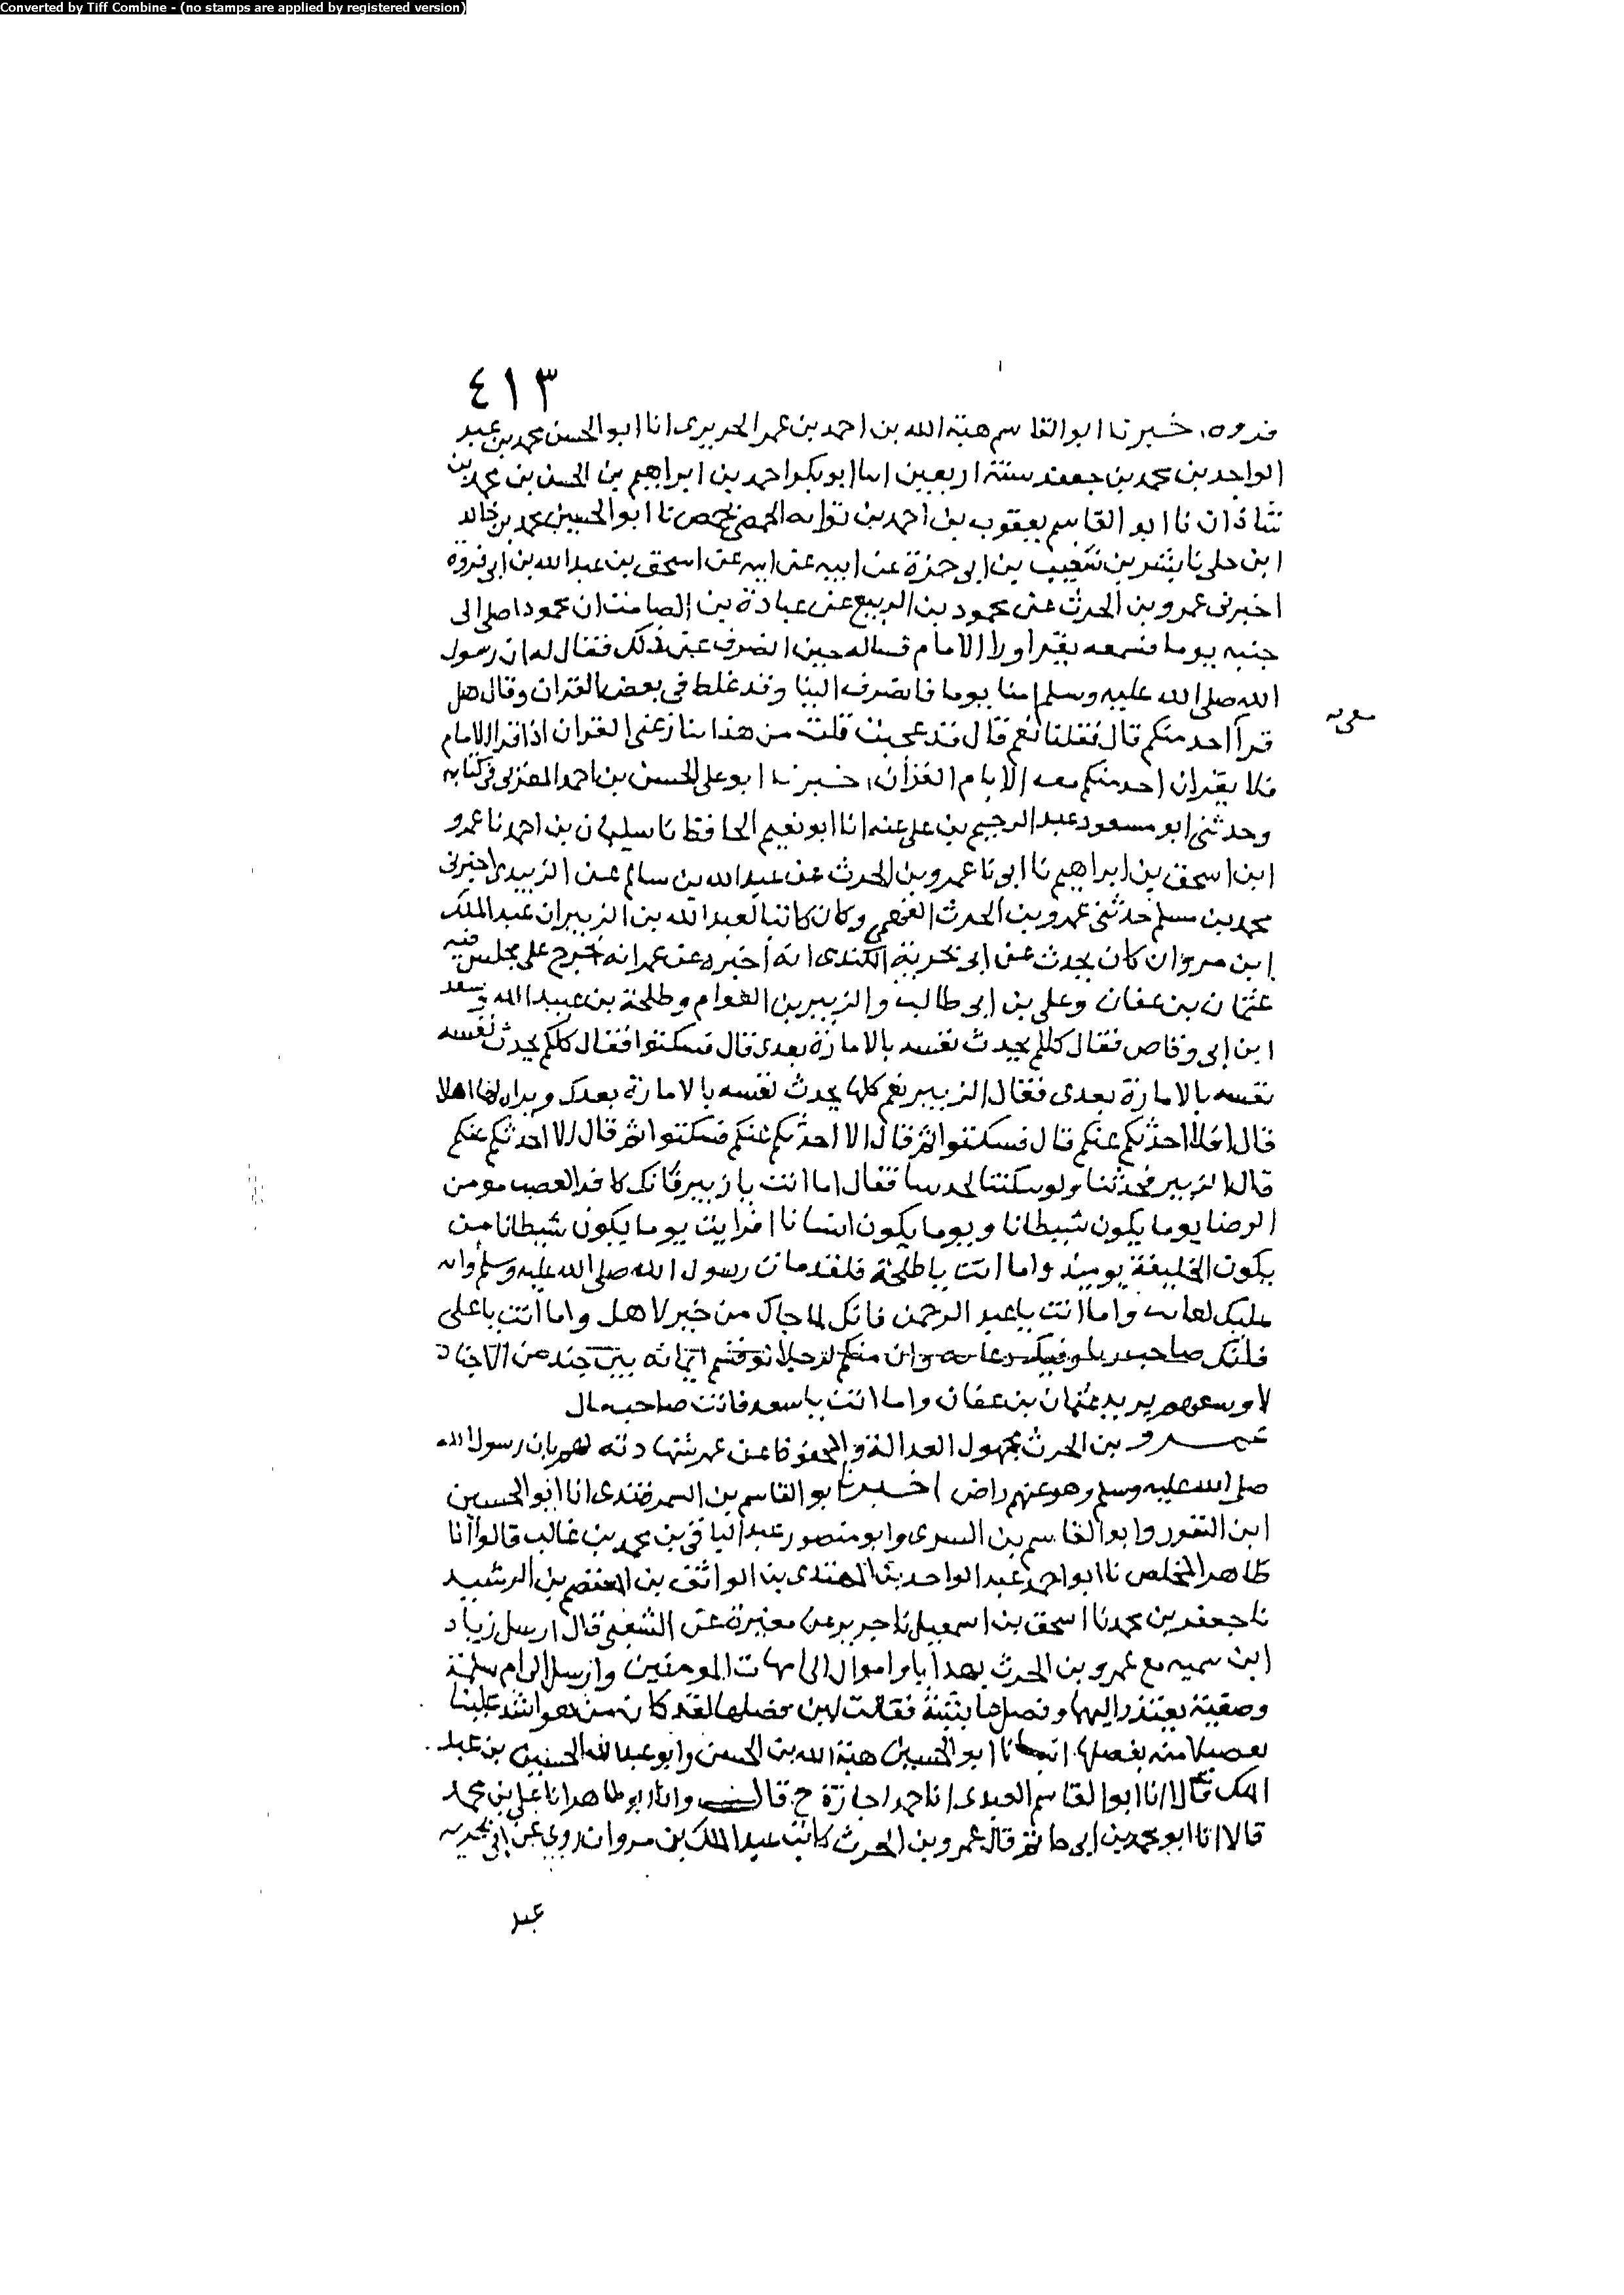 Converted by Tiff Combine - (no stamps are applied by registered version)
٤١٣
فروه، خبرنا ابو القاسم هبة الله بن احمد بن عمر الحريرى انا ابو الحسن محمد بن عبد
الواحد بن محمد بن جعفر سنة اربعين انا ابو بكر احمد بن ابراهيم بن الحسن بن محمد بن
شاذان نا ابو القاسم يعقوب بن احمد بن ثوابه الحمصى بحمص نا ابو الحسين محمد بن خالد
ابن خلى نا بشر بن شعيب بن ابى حمزة عن ابيه عن اسحق بن عبد الله بن ابى فروة
اخبرنى عمرو بن الحرث عن محمود بن الربيع عن عبادة بن الصامت ان محمودا صلى الى
جنبه يوما فسمعه يقرا ورا الامام فساله حين انصرف عن ذلك فقال له ان رسول
الله صلى الله عليه وسلم امنا يوما فانصرف الينا وقد غلط فى بعض القران وقال هل
معى
قرأ احد منكم قال فقلنا نعم قال قد عجبت قلت من هذا ينازعنى القران اذا قرا الامام
فلا يقران احد منكم معه الامام القرأن، خبرنا ابو على الحسن بن احمد المقرى فى كتابه
وحدثنى ابو مسعود عبد الرحيم بن على عنه انا ابو نعيم الحافظ نا سليمان بن احمد نا عمرو
ابن اسحق بن ابراهيم نا ابى نا عمرو بن الحرث عن عبد الله بن سالم عن الزبيدى اخبرنى
محمد بن مسلم حدثنى عمرو بن الحرث الفهمى وكان كاتبا لعبد الله بن الزبير ان عبد الملك
ابن مروان كان يحدث عن ابى بحرية الكندى انه اخبره عن عمر انه خرج على مجلس فيه
عثمان بن عفان وعلى بن ابى طالب والزبير بن العوام وطلحة بن عبيد الله وسعد
ابن ابى وقاص فقال كلكم يحدث نفسه بالامارة بعدى قال فسكتوا فقال كلكم يحدث نفسه
نفسه بالامارة بعدى فقال الزبير نعم كلنا يحدث نفسه بالامارة بعدك ويراه لها اهلا
قال افلا احدثكم عنكم قال فسكتوا ثم قال الا احدثكم عنكم فسكتوا ثم قال الا احدثكم عنكم
قال الزبير فحدثنا ولو سكتنا لحدثتنا فقال اما انت يا زبير فانك كافر الغضب مومن
الرضا يوما يكون شيطانا ويوما يكون انسانا افرايت يوما يكون شيطانا من
يكون الخليفة يوميذ واما انت يا طلحة فلقد مات رسول الله صلى الله عليه وسلم وانه
عليك لعاتب واما انت يا عبد الرحمن فانك لما جاك من خير لاهل واما انت يا على
فانك صاحب وفيك دعابه وان منكم لرجلا لو قسم ايمانه بين جند من الاجناد
لاوسعهم يريد عثمان بن عفان واما انت يا سعد فانت صاحب مال
عمرو بن الحرث مجهول العدالة والمحفوظ عن عمر شهادته لهم بان رسول الله
صلى الله عليه وسلم وهو عنهم راض اخبرنا ابو القاسم بن السمرقندى انا ابو الحسين
ابن النقور وابو القاسم بن البسرى وابو منصور عبد الباقى بن محمد بن غالب قالوا أنا
طاهر المخلص نا ابو احمد عبد الواحد بن المهتدى بن الواثق بن المعتصم بن الرشيد
نا جعفر بن محمد نا اسحق بن اسمعيل نا جرير عن مغيرة عن الشعبى قال ارسل زياد
ابن سميه مع عمرو بن الحرث بهدايا واموال الى امهات المومنين وارسل الى ام سلمة
وصفية يعتذر اليهما وفضل عايشة فقالت لين فضلها لقد كان من هو اشد علينا
تفضيلا منه يفضلها، انبانا ابو الحسين هبة الله بن الحسن وابو عبد الله الحسين بن عبد
الملك قالا انا ابو القاسم العبدى انا حمد اجازة ح قال وانا ابو طاهر انا على بن محمد
قالا انا ابو محمد بن ابى حاتم قال عمرو بن الحرث كاتب عبد الملك بن مروان روى عن ابى بحريه
عبد